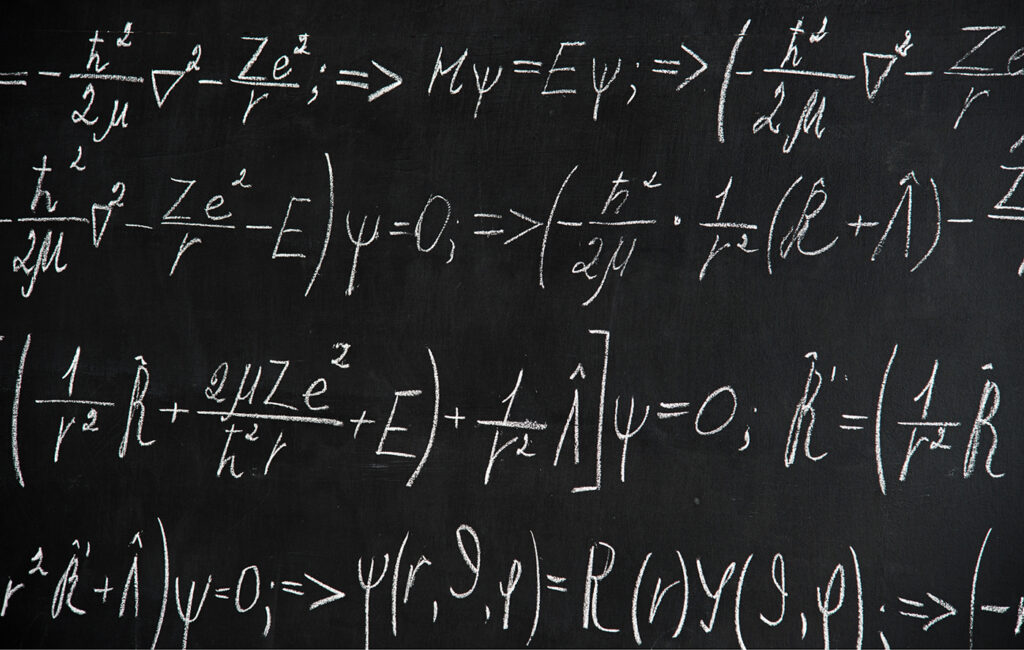 = - ħ²/2μ ∇² - Ze²/r ; => Hψ = Eψ ; => ( - ħ²/2μ ∇² - Ze/r
- ħ²/2μ ∇² - Ze²/r - E ) ψ = 0 ; => ( - ħ²/2μ · 1/r² ( R̂ + Λ̂ ) - Z
( 1/r² R̂ + 2μZe²/ħ²r + E ) + 1/r² Λ̂ ] ψ = 0 ; R̂' = ( 1/r² R̂
r² R̂' + Λ̂ ) ψ = 0 ; => ψ ( r , ϑ , φ ) = R ( r ) Y ( ϑ , φ ) ; => ( -